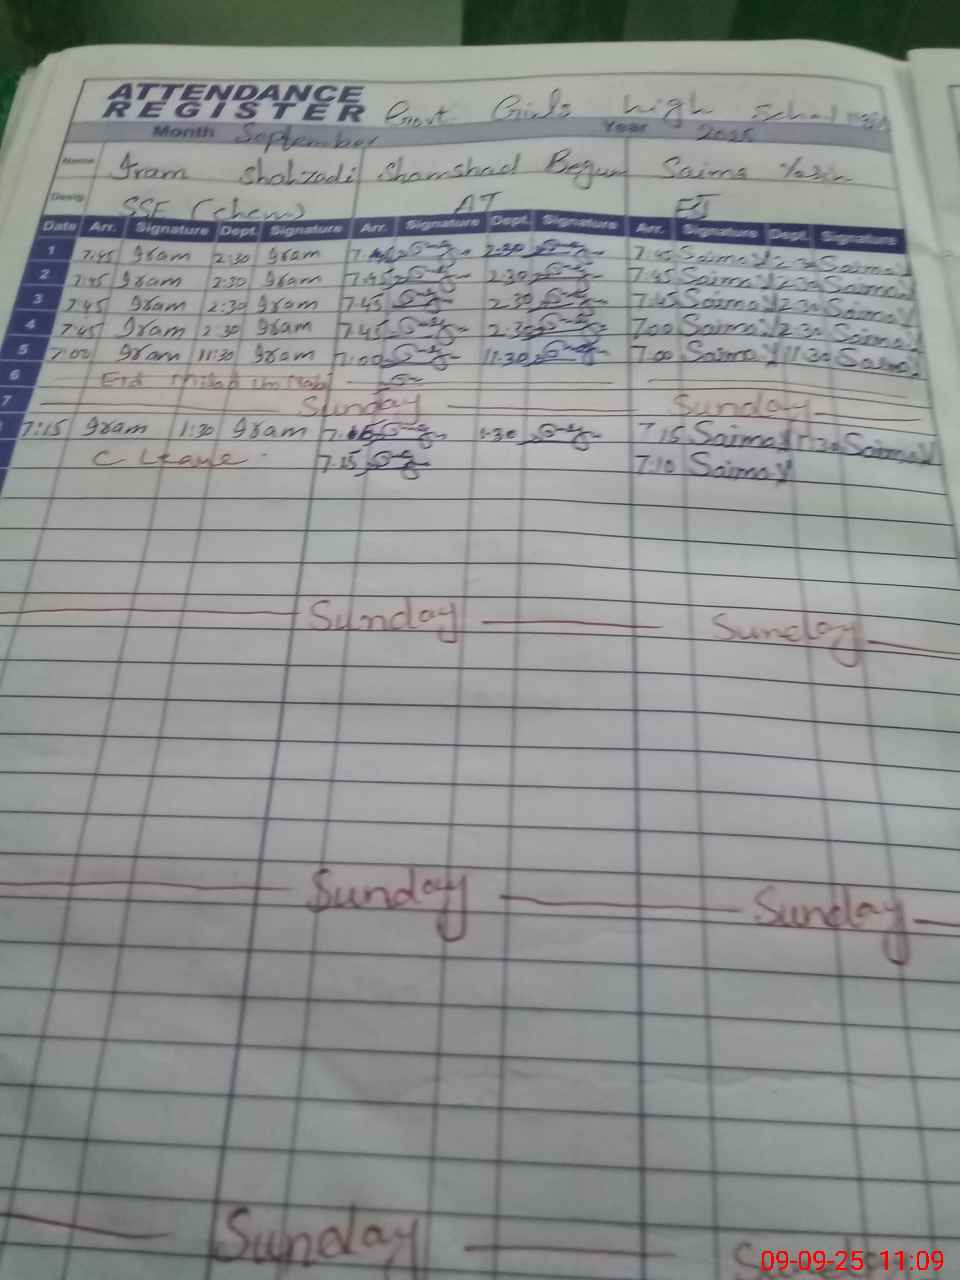 ATTENDANCE
REGISTER Govt. Girls high School
Month September Year 2025
Name Iram Shahzadi Shamshad Begum Saima Yasin
Desig SSE (chem) AT EST
Date Arr. Signature Dept. Signature Arr. Signature Dept. Signature Arr. Signature Dept. Signature
1 7:45 Iram 2:30 Iram 7.45 2:30 7:45 Saima Y 2:30 Saima Y
2 7:45 Iram 2:30 Iram 7.45 2.30 7:45 Saima Y 2:30 Saima Y
3 7:45 Iram 2:30 Iram 7.45 2.30 7:45 Saima Y 2:30 Saima Y
4 7:45 Iram 2:30 Iram 7.45 2.30 7:00 Saima Y 2:30 Saima Y
5 7:00 Iram 11:30 Iram 7:00 11.30 7.00 Saima Y 11:30 Saima Y
6 Eid Milad Un Nabi
7 Sunday Sunday
7:15 Iram 1:30 Iram 1:30 7:15 Saima Y 1:30 Saima Y
C Leave 7.15 7:10 Saima Y
Sunday Sunday
Sunday Sunday
Sunday
09-09-25 11:09